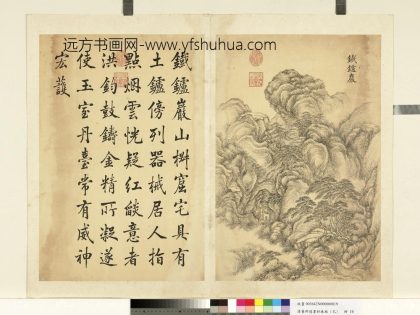 远方书画网-www.yfshuhua.com
鐵鑪巖
鐵鑪巖山椒窟宅具有
土鑪傍列器械居人指
點烟雲恍疑紅燄意者
洪鈞鼓鑄金精所凝遂
使玉室丹臺常有威神
宏護